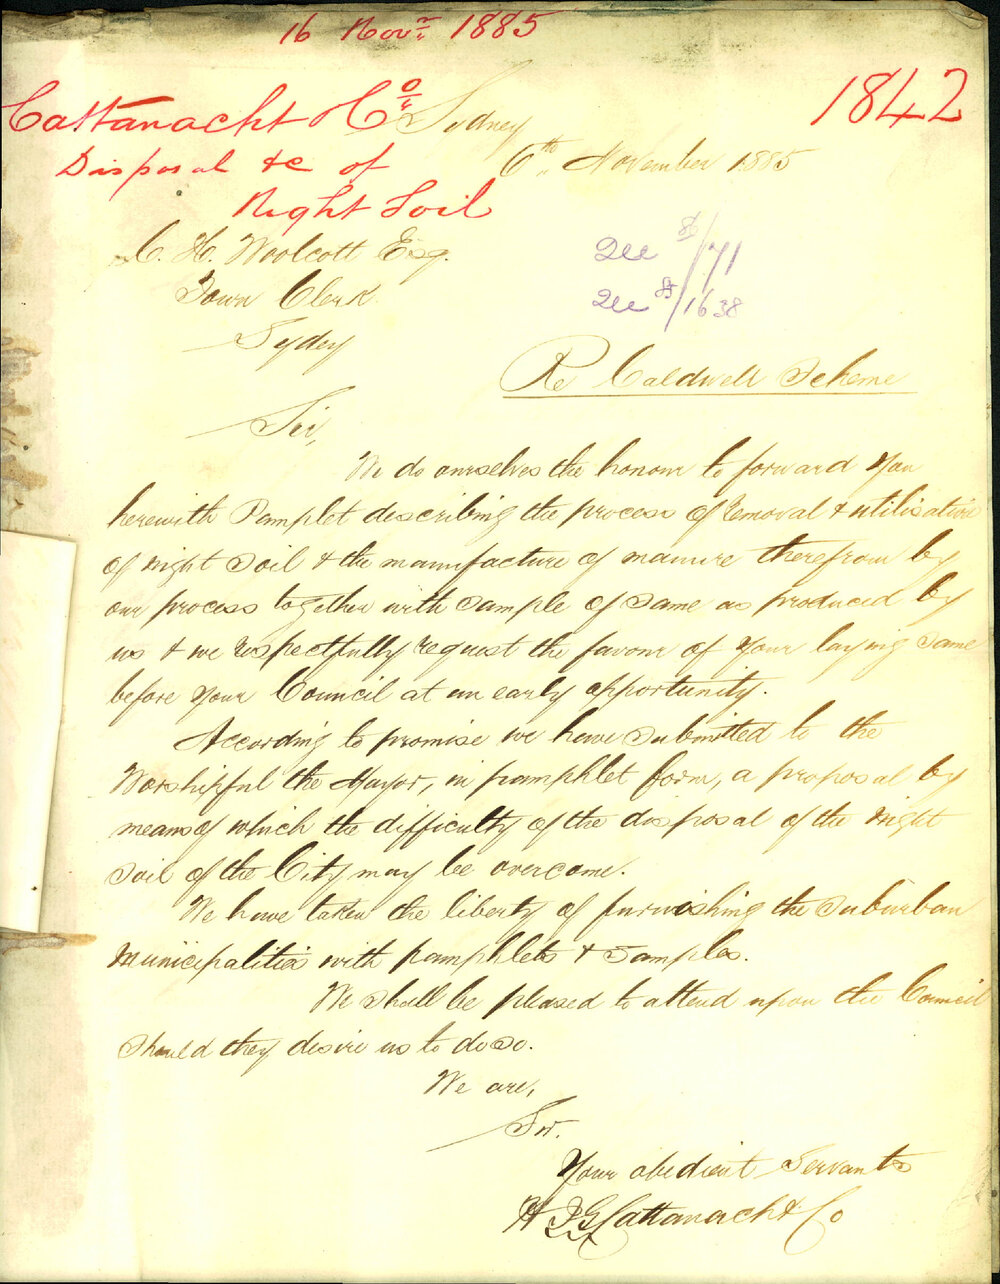 16 Novr 1885
Cattanacht & Co
1842
Disposal &c of
Night Soil
Sydney
6th November 1885
C. H. Woolcott Esq.
Town Clerk
Sydey
Dec 86/71
Dec 85/1638
Re Caldwell Scheme
Sir,
We do ourselves the honour to forward You
herewith Pamplet describing the process of removal & utilisation
of night Soil & the manufacture of manure therefrom by
our process together with sample of same as produced by
us & we respectfully request the favour of Your laying same
before Your Council at an early opportunity.
According to promise we have submitted to the
Worshipful the Mayor, in pamphlet form, a proposal by
means of which the difficulty of the disposal of the Night
Soil of the City may be overcome.
We have taken the liberty of furnishing the Suburban
Municipalities with pamphlets & Samples.
We shall be pleased to attend upon the Council
should they desire us to do so.
We are,
Sir.
Your obedient Servants
Cattanacht & Co